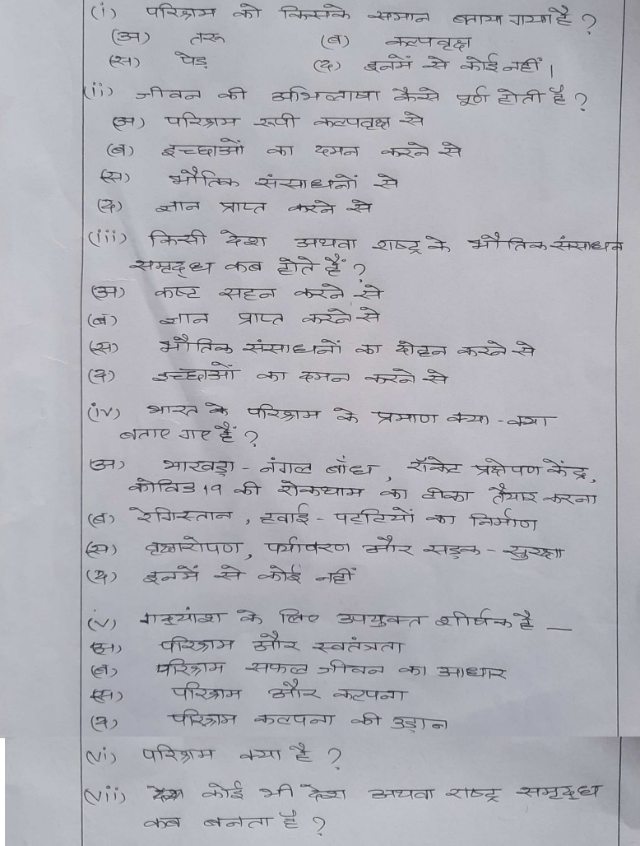 (i) परिश्रम को किसके समान बताया गया है ?
(अ) तरू (ब) कल्पवृक्ष
(स) पेड़ (द) इनमें से कोई नहीं ।
(ii) जीवन की अभिलाषा कैसे पूर्ण होती है ?
(अ) परिश्रम रूपी कल्पवृक्ष से
(ब) इच्छाओं का दमन करने से
(स) भौतिक संसाधनों से
(द) ज्ञान प्राप्त करने से
(iii) किसी देश अथवा राष्ट्र के भौतिक संसाधन
समृद्ध कब होते हैं ?
(अ) कष्ट सहन करने से
(ब) ज्ञान प्राप्त करने से
(स) भौतिक संसाधनों का दोहन करने से
(द) इच्छाओं का दमन करने से
(iv) भारत के परिश्रम के प्रमाण क्या - क्या
बताए गए हैं ?
(अ) भाखड़ा - नंगल बाँध , रॉकेट प्रक्षेपण केंद्र,
कोविड 19 की रोकथाम का टीका तैयार करना
(ब) रेगिस्तान , हवाई - पट्टियों का निर्माण
(स) वृक्षारोपण, पर्यावरण और सड़क - सुरक्षा
(द) इनमें से कोई नहीं
(v) गद्यांश के लिए उपयुक्त शीर्षक है —
(अ) परिश्रम और स्वतंत्रता
(ब) परिश्रम सफल जीवन का आधार
(स) परिश्रम और कल्पना
(द) परिश्रम कल्पना की उड़ान
(vi) परिश्रम क्या है ?
(vii) कोई भी देश अथवा राष्ट्र समृद्ध
कब बनता है ?